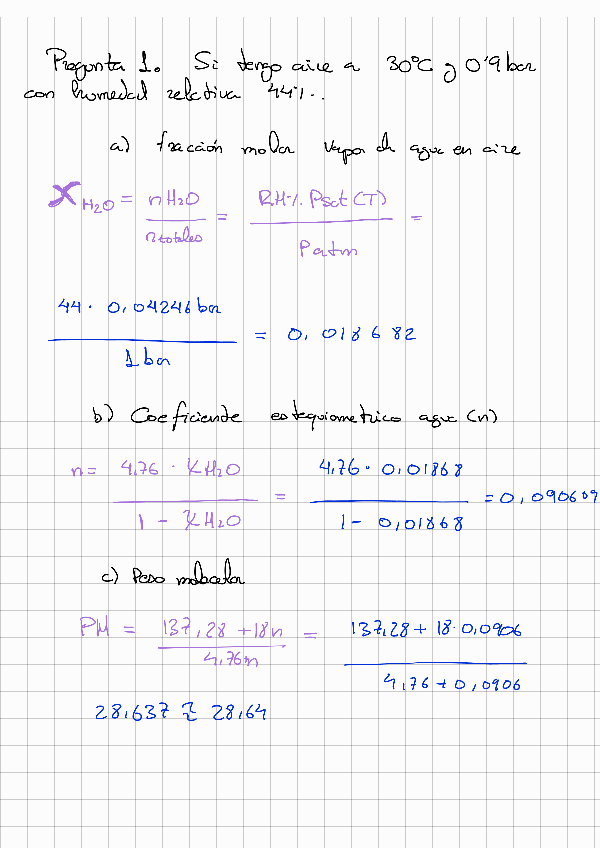 Pregunta 1. Si tengo aire a 30°C y 0'9 bar
con humedad relativa 44%.
a) fracción molar vapor de agua en aire
X H2O = nH2O / n totales = RH% Psat (T) / Patm =
44 · 0,04246 bar / 1 bar = 0,018682
b) Coeficiente estequiometrico agua (n)
n = 4,76 · XH2O / 1 - XH2O = 4,76 · 0,01868 / 1 - 0,01868 = 0,090609
c) Peso molecular
PM = 137,28 + 18n / 4,76n = 137,28 + 18·0,0906 / 4,76 + 0,0906
28,637 ≈ 28,64